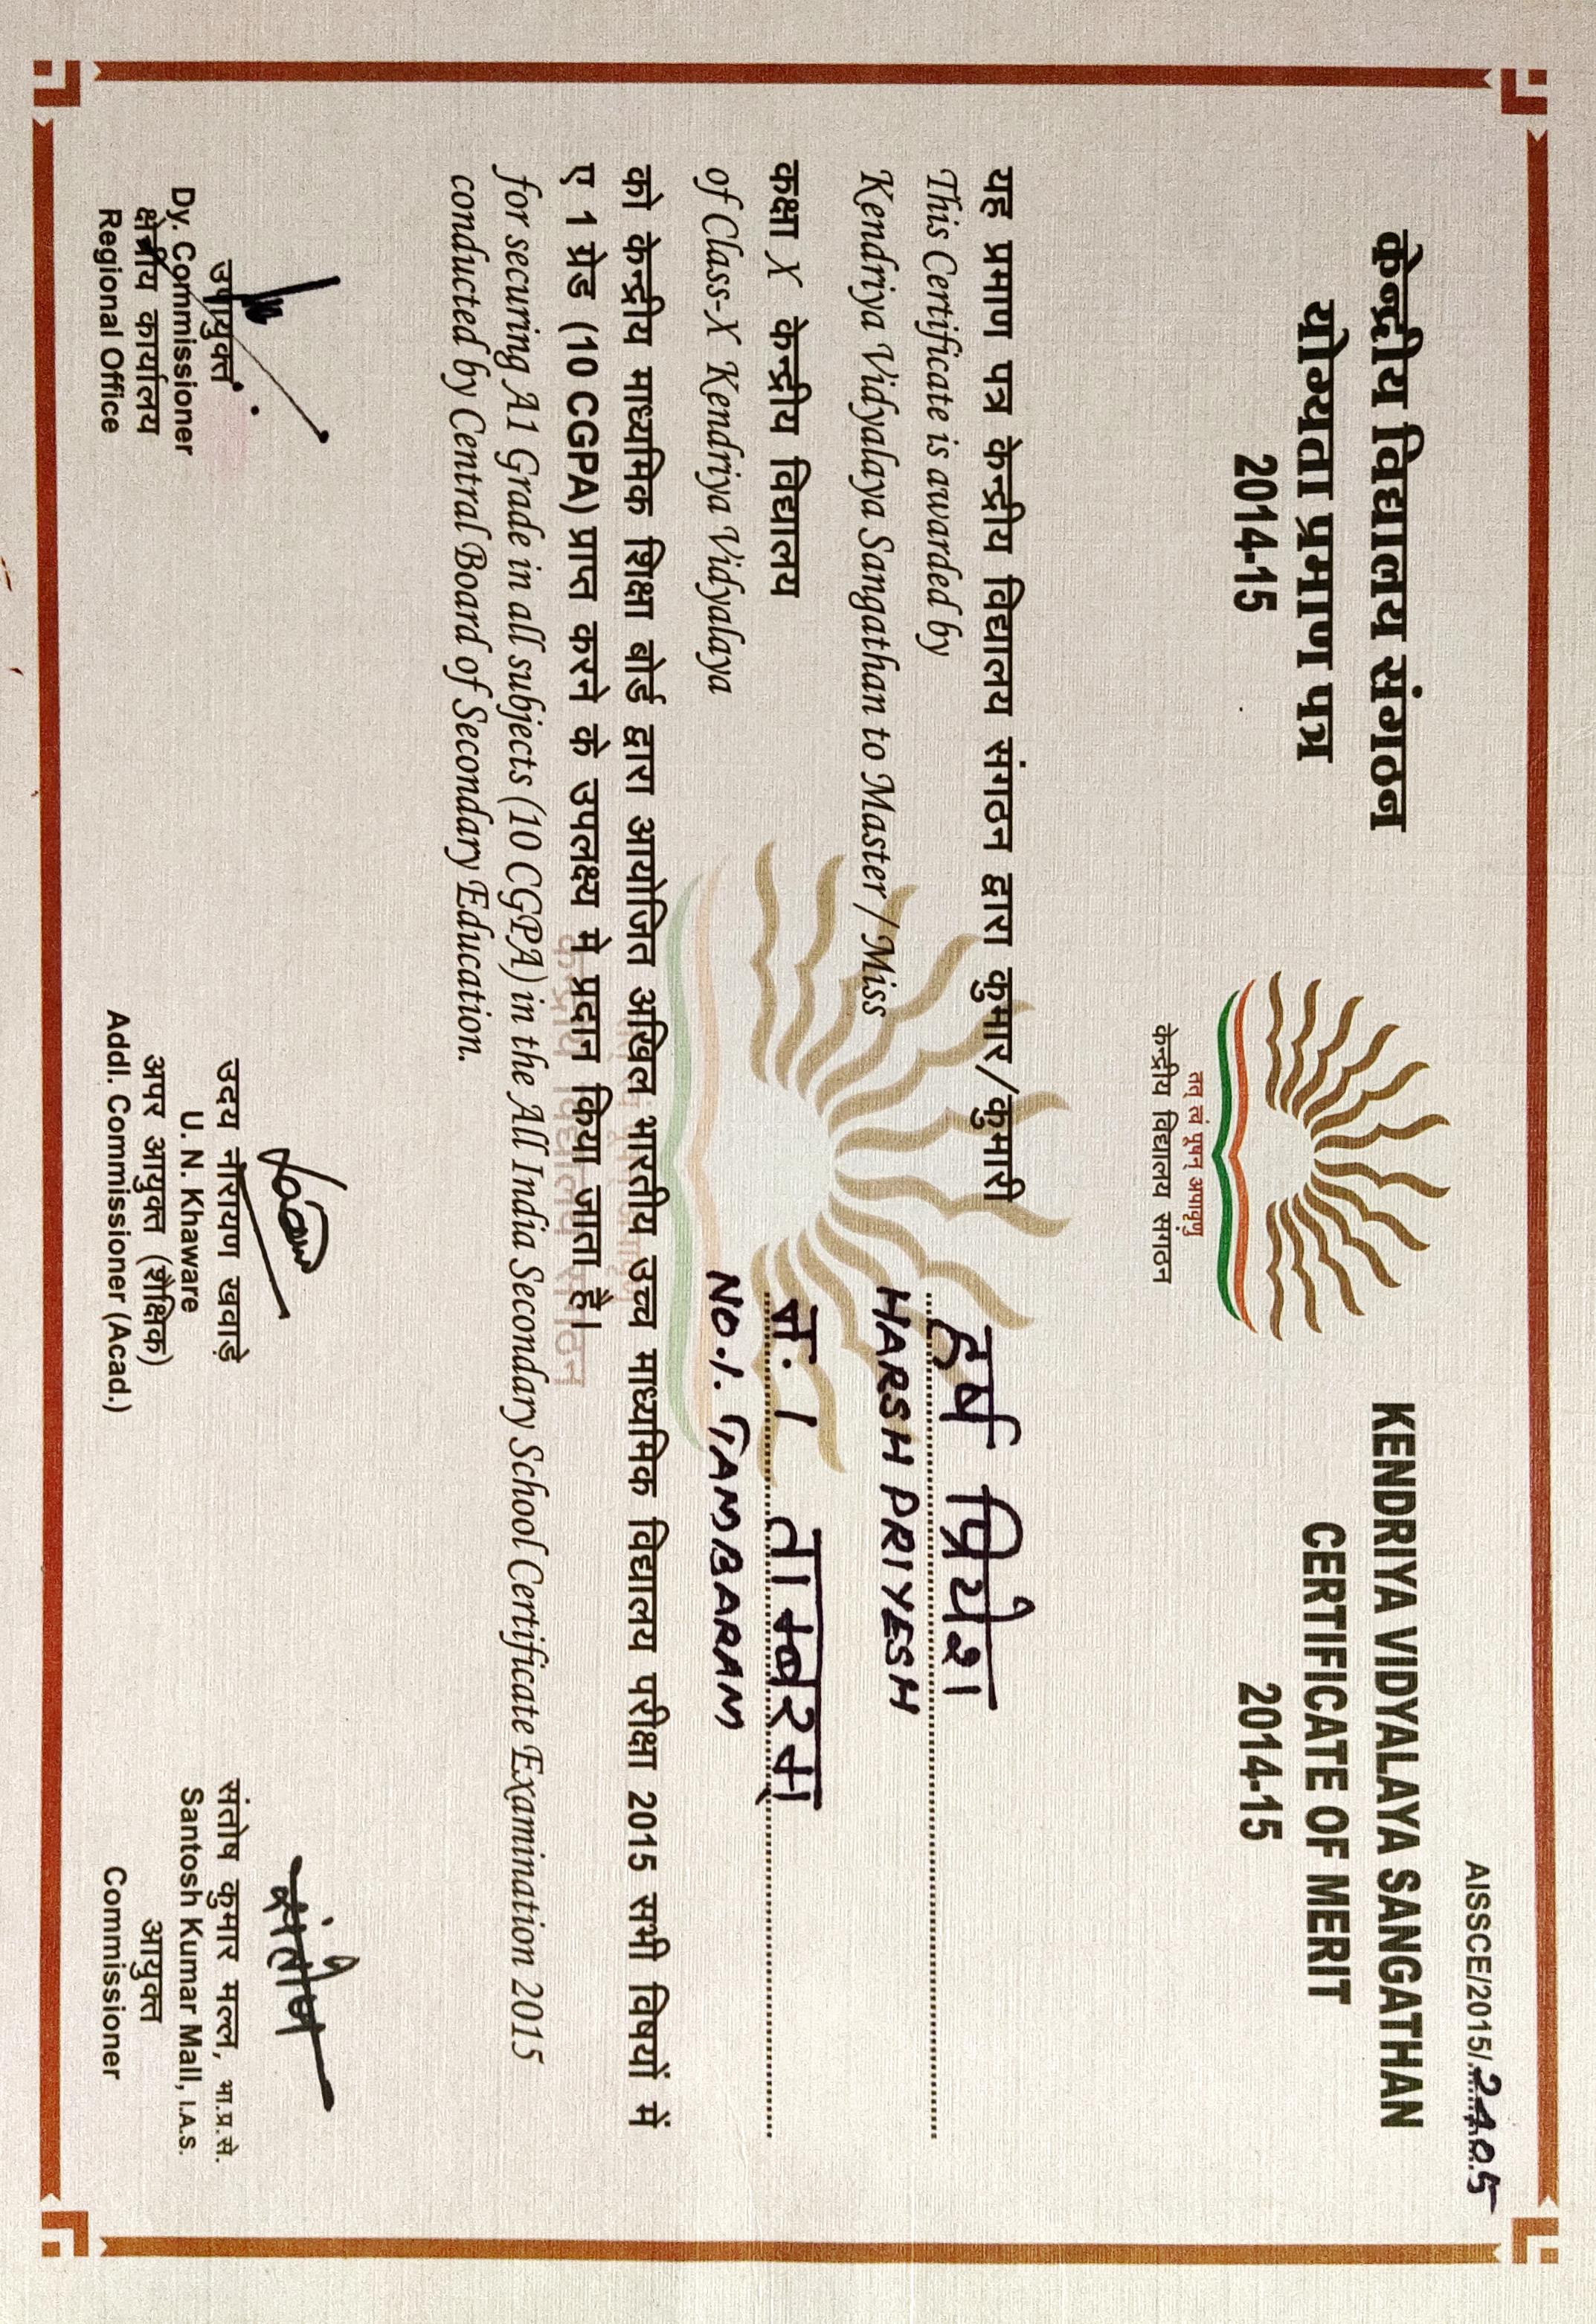 AISSCE/2015/2405
केन्द्रीय विद्यालय संगठन
योग्यता प्रमाण पत्र
2014-15
तत् त्वं पूषन् अपावृणु
केन्द्रीय विद्यालय संगठन
KENDRIYA VIDYALAYA SANGATHAN
CERTIFICATE OF MERIT
2014-15
यह प्रमाण पत्र केन्द्रीय विद्यालय संगठन द्वारा कुमार/कुमारी हर्ष प्रियेश
This Certificate is awarded by
Kendriya Vidyalaya Sangathan to Master / Miss HARSH PRIYESH
कक्षा X केन्द्रीय विद्यालय न. 1 ताम्बरम्
of Class-X Kendriya Vidyalaya NO.1. TAMBARAM
को केन्द्रीय माध्यमिक शिक्षा बोर्ड द्वारा आयोजित अखिल भारतीय उच्च माध्यमिक विद्यालय परीक्षा 2015 सभी विषयों में
ए 1 ग्रेड (10 CGPA) प्राप्त करने के उपलक्ष्य मे प्रदान किया जाता है।
केन्द्रीय विद्यालय संगठन
for securing A1 Grade in all subjects (10 CGPA) in the All India Secondary School Certificate Examination 2015
conducted by Central Board of Secondary Education.
उपायुक्त
Dy. Commissioner
क्षेत्रीय कार्यालय
Regional Office
उदय नारायण खवाड़े
U. N. Khaware
अपर आयुक्त (शैक्षिक)
Addl. Commissioner (Acad.)
संतोष
संतोष कुमार मल्ल, भा.प्र.से.
Santosh Kumar Mall, I.A.S.
आयुक्त
Commissioner